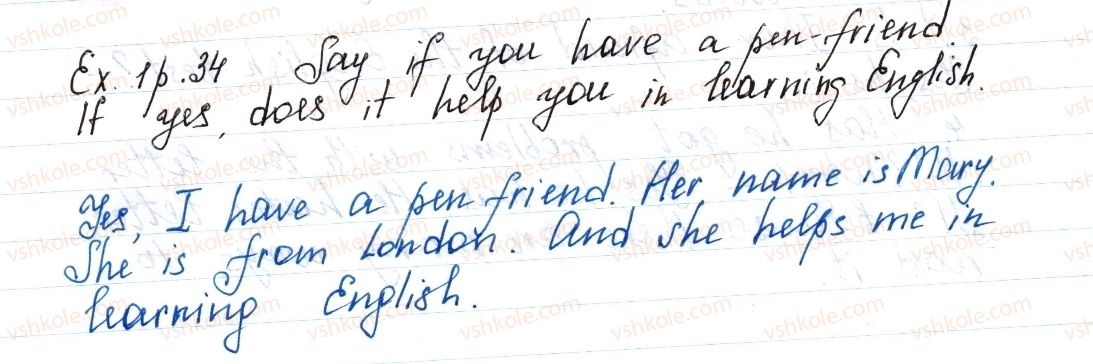 Ex. 1 p. 34 Say if you have a pen-friend.
If yes, does it help you in learning English.
Yes, I have a pen friend. Her name is Mary.
She is from London. And she helps me in
learning English.